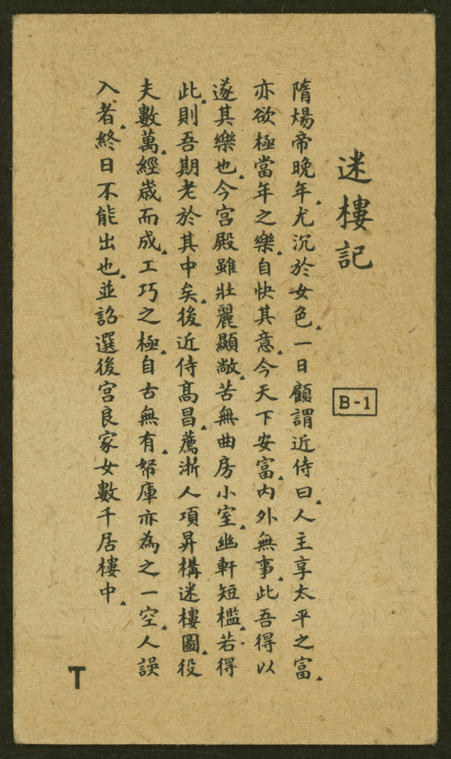 迷樓記
B-1
隋煬帝晚年。尤沉於女色。一日顧謂近侍曰。人主享太平之富。
亦欲極當年之樂。自快其意。今天下安富。內外無事。此吾得以
遂其樂也。今宮殿雖壯麗顯敞。苦無曲房小室。幽軒短檻。若得
此。則吾期老於其中矣。後近侍高昌。薦浙人項昇構迷樓圖。役
夫數萬。經歲而成。工巧之極。自古無有。帑庫亦為之一空。人誤
入者。終日不能出也。並詔選後宮良家女數千居樓中。
T